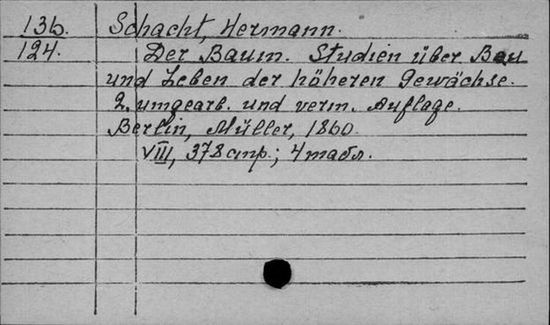 136. Schacht, Hermann.
124. Der Baum. Studien über Bau
und Leben der höheren Gewächse.
2. umgearb. und verm. Auflage.
Berlin, Müller, 1860.
VIII, 378 стр.; 4 табл.